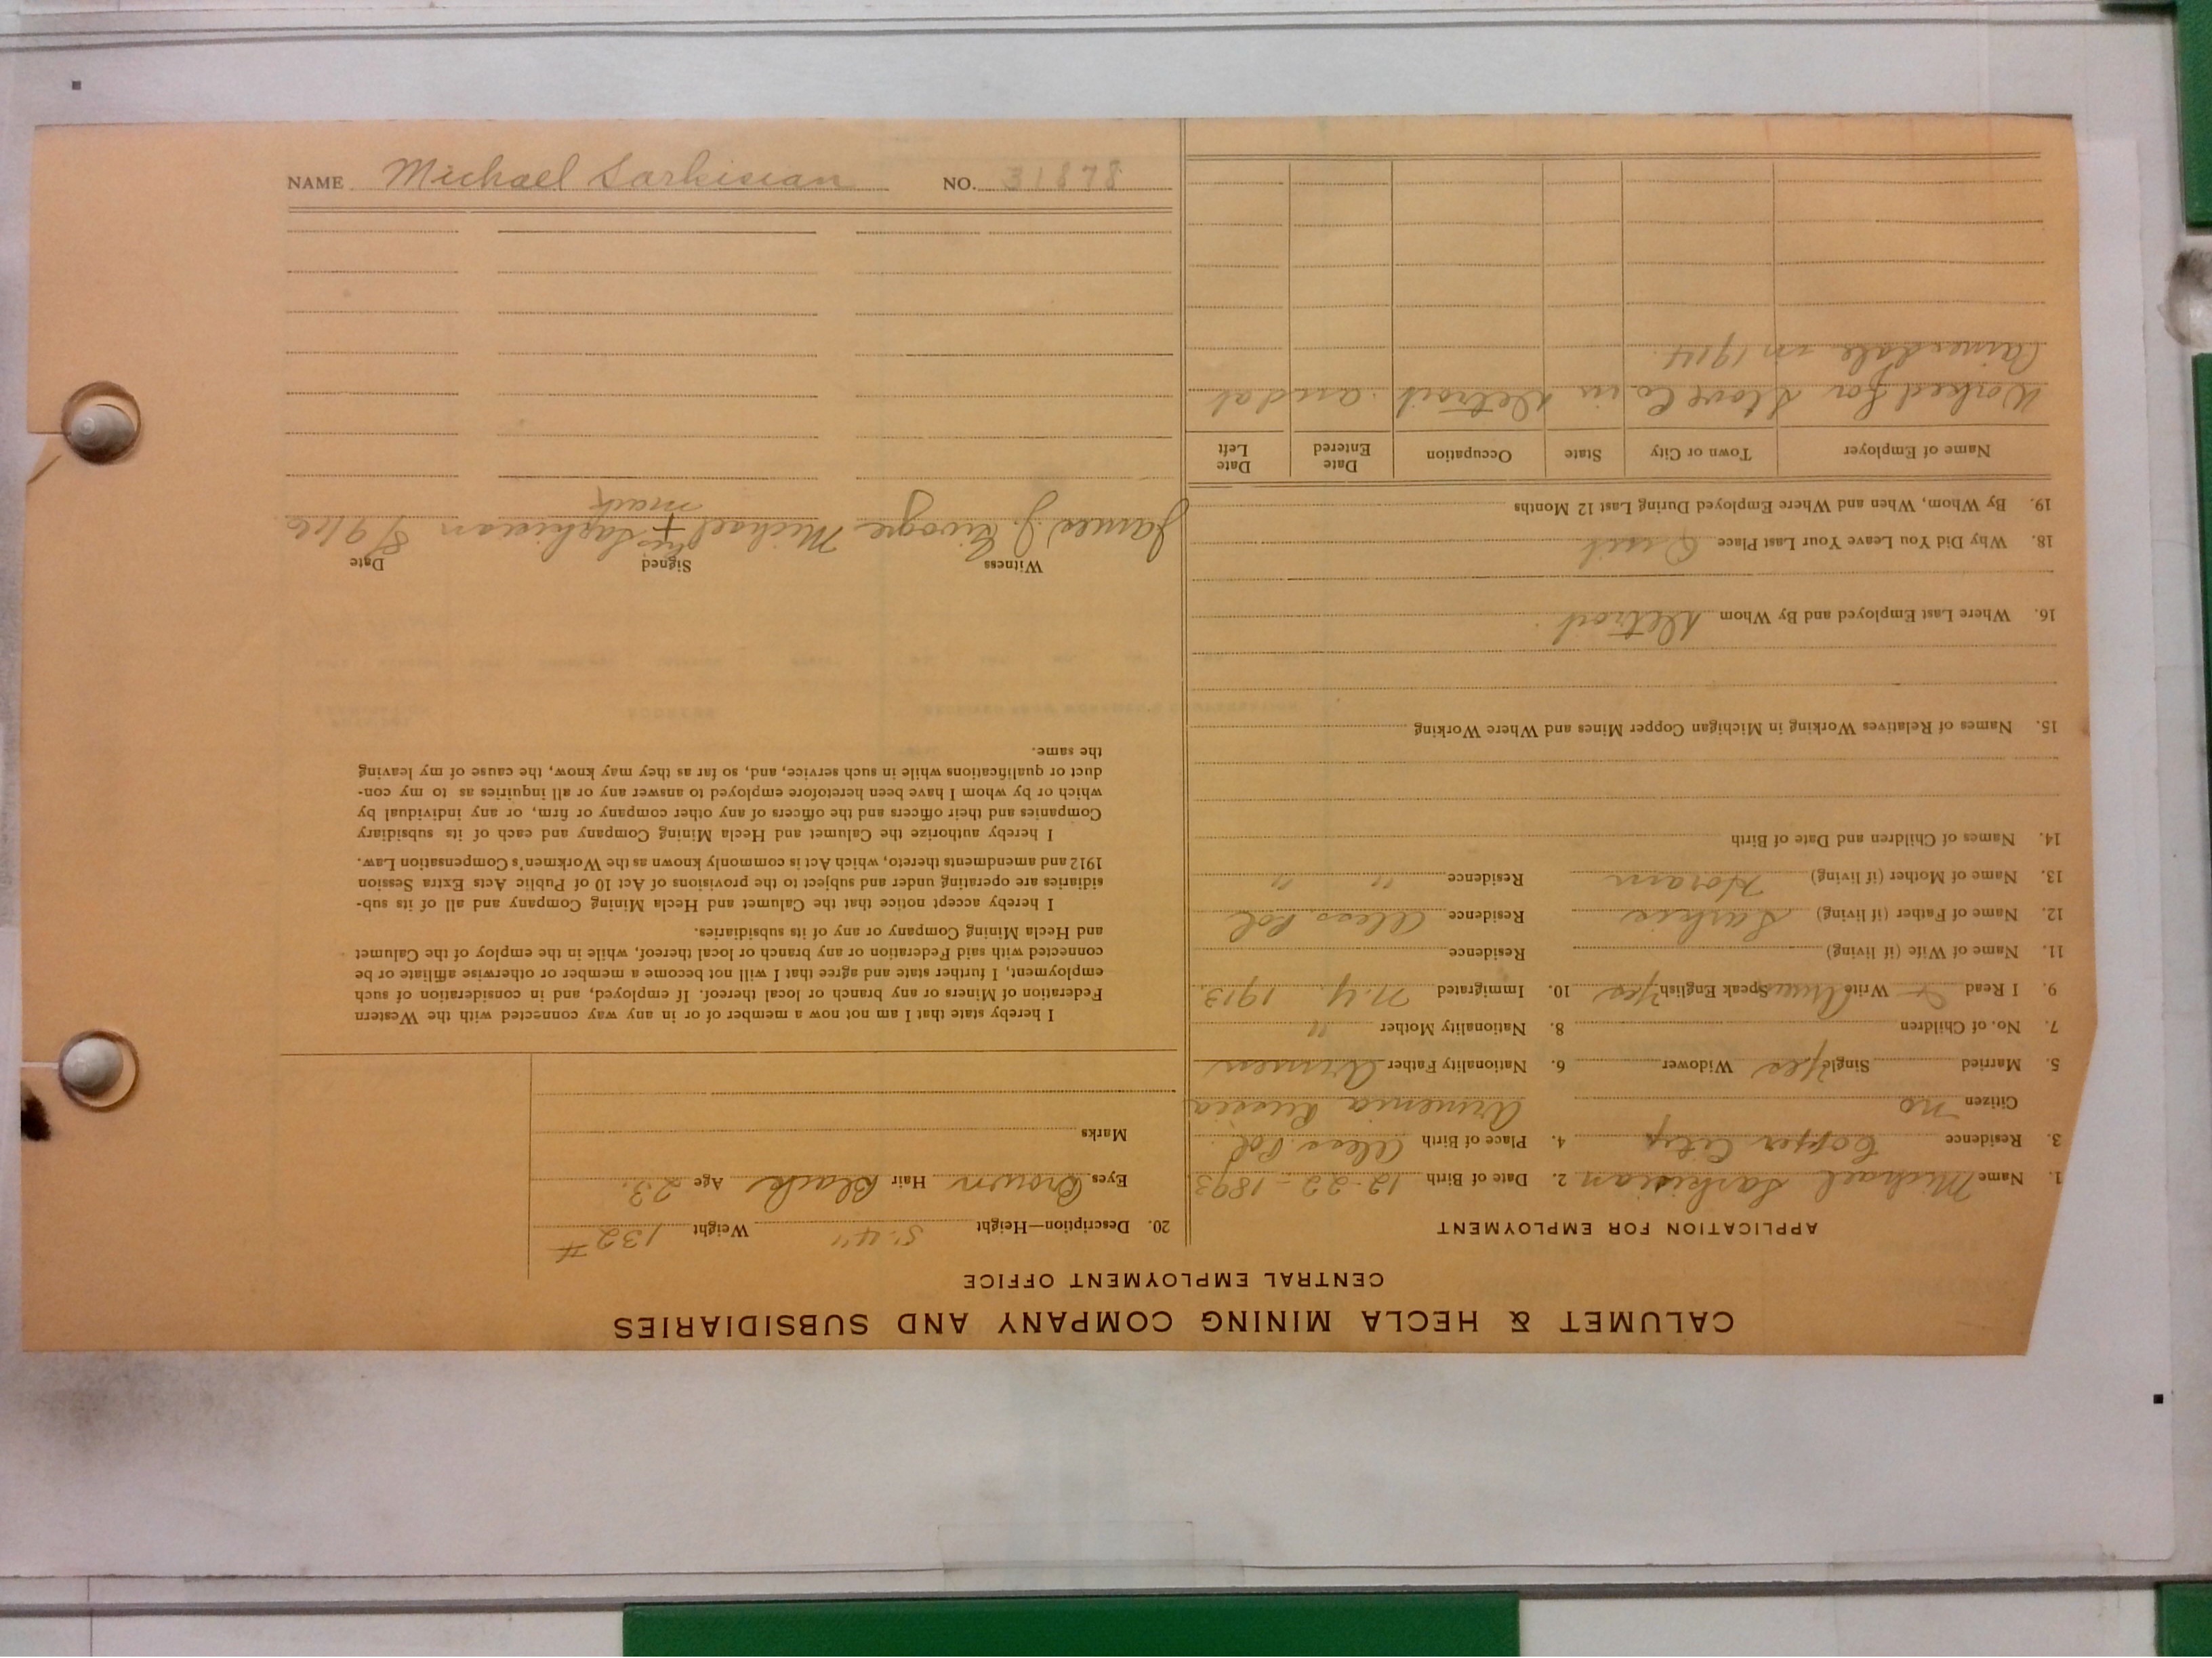 NAME Michael Sarkisian NO. 31878
CALUMET & HECLA MINING COMPANY AND SUBSIDIARIES
CENTRAL EMPLOYMENT OFFICE
APPLICATION FOR EMPLOYMENT
1. Name Michael Sarkisian 2. Date of Birth 12-22-1893
3. Residence Copper City 4. Place of Birth Alexs. Pol.
Citizen no Armenia Russia
5. Married Single yes Widower 6. Nationality Father Armen
7. No. of Children 8. Nationality Mother "
9. I Read Write Speak English yes 10. Immigrated N.Y. 1913.
11. Name of Wife (if living) Residence
12. Name of Father (if living) Sarkis Residence Alexs. Pol
13. Name of Mother (if living) Residence " "
14. Names of Children and Date of Birth
15. Names of Relatives Working in Michigan Copper Mines and Where Working
16. Where Last Employed and By Whom Detroit
18. Why Did You Leave Your Last Place Quit
19. By Whom, When and Where Employed During Last 12 Months
Name of Employer Town or City State Occupation Date Entered Date Left
Worked for Stove Co in Detroit and at
in 1914
20. Description—Height 5'4" Weight 132#
Eyes Brown Hair Black Age 23.
Marks
I hereby state that I am not now a member of or in any way connected with the Western
Federation of Miners or any branch or local thereof. If employed, and in consideration of such
employment, I further state and agree that I will not become a member or otherwise affiliate or be
connected with said Federation or any branch or local thereof, while in the employ of the Calumet
and Hecla Mining Company or any of its subsidiaries.
I hereby accept notice that the Calumet and Hecla Mining Company and all of its sub-
sidiaries are operating under and subject to the provisions of Act 10 of Public Acts Extra Session
1912 and amendments thereto, which Act is commonly known as the Workmen's Compensation Law.
I hereby authorize the Calumet and Hecla Mining Company and each of its subsidiary
Companies and their officers and the officers of any other company or firm, or any individual by
which or by whom I have been heretofore employed to answer any or all inquiries as to my con-
duct or qualifications while in such service, and, so far as they may know, the cause of my leaving
the same.
Witness Signed Date
James J. Michael his + Sarkisian 8/9/16
mark